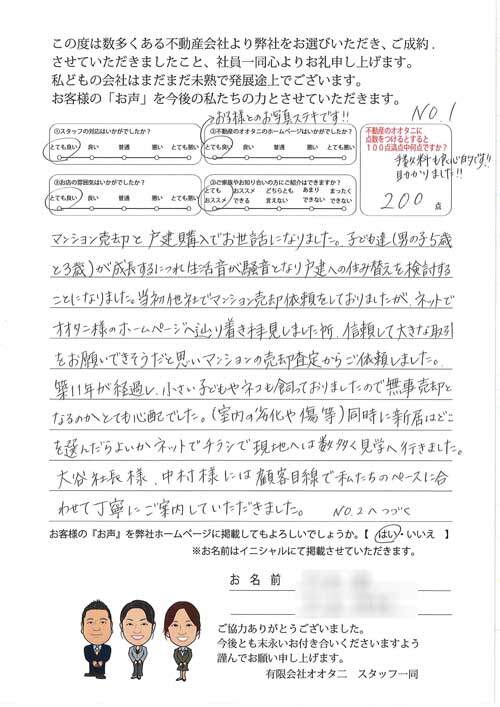 この度は数多くある不動産会社より弊社をお選びいただき、ご成約
させていただきましたこと、社員一同心よりお礼申し上げます。
私どもの会社はまだまだ未熟で発展途上でございます。
お客様の「お声」を今後の私たちの力とさせていただきます。
NO.1
→お子様とのお写真ステキです!!
①スタッフの対応はいかがでしたか?
とても良い 良い 普通 悪い とても悪い
②不動産のオオタニのホームページはいかがでしたか?
とても良い 良い 普通 悪い とても悪い
③お店の雰囲気はいかがでしたか?
とても良い 良い 普通 悪い とても悪い
③ご家族やお知り合いの方にご紹介はできますか?
とてもおススメ おススメできる どちらとも言えない あまりできない まったくできない
不動産のオオタニに
点数をつけるとすると
100点満点中何点ですか?
手数料も良心的で!!
助かりました!!
200 点
マンション売却と戸建購入でお世話になりました。子ども達(男の子5歳
と3歳)が成長するにつれ生活音が騒音となり戸建への住み替えを検討する
ことになりました。当初他社でマンション売却依頼をしておりましたが、ネットで
オオタニ様のホームページへ辿り着き拝見しました所、信頼して大きな取引
をお願いできそうだと思いマンションの売却査定からご依頼しました。
築11年が経過し、小さい子どもやネコも飼っておりましたので無事売却と
なるのかとても心配でした。(室内の劣化や傷等)同時に新居はどこ
を選んだらよいかネットでチラシで現地へは数多く見学へ行きました。
大谷社長様、中村様には顧客目線で私たちのペースに合
わせて丁寧にご案内していただきました。 NO.2へつづく
お客様の『お声』を弊社ホームページに掲載してもよろしいでしょうか。【 はい・いいえ 】
※お名前はイニシャルにて掲載させていただきます。
お名前
ご協力ありがとうございました。
今後とも末永いお付き合いくださいますよう
謹んでお願い申し上げます。
有限会社オオタニ スタッフ一同